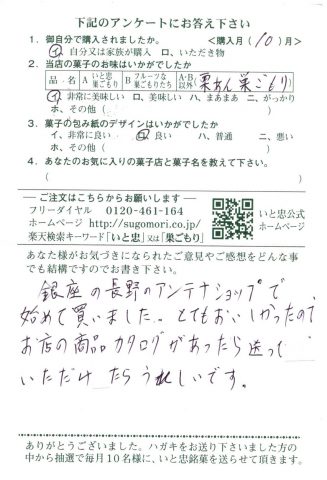 下記のアンケートにお答え下さい
1. 御自分で購入されましたか。 <購入月(10)月>
イ、自分又は家族が購入 ロ、いただき物
2. 当店の菓子のお味はいかがでしたか
品・名 A いと忠巣ごもり B フルーツな巣ごもりたち A・B以外 栗あん巣ごもり
イ、非常に美味しい ロ、美味しい ハ、まあまあ ニ、がっかり
ホ、その他( )
3. 菓子の包み紙のデザインはいかがでしたか
イ、非常に良い ロ、良い ハ、普通 ニ、悪い
ホ、その他( )
4. あなたのお気に入りの菓子店と菓子名を教えて下さい。
( )
ご注文はこちらからお願いします
フリーダイヤル 0120-461-164
ホームページ http://sugomori.co.jp/
楽天検索キーワード「いと忠」又は「巣ごもり」
いと忠公式
ホームページ
あなた様がお気づきになられたご意見やご感想をどんな事
でも結構ですのでお書き下さい。
銀座の長野のアンテナショップで
始めて買いました。とてもおいしかったので
お店の商品カタログがあったら送って
いただけたらうれしいです。
ありがとうございました。ハガキをお送り下さいました方の
中から抽選で毎月10名様に、いと忠銘菓を送らせて頂きます。